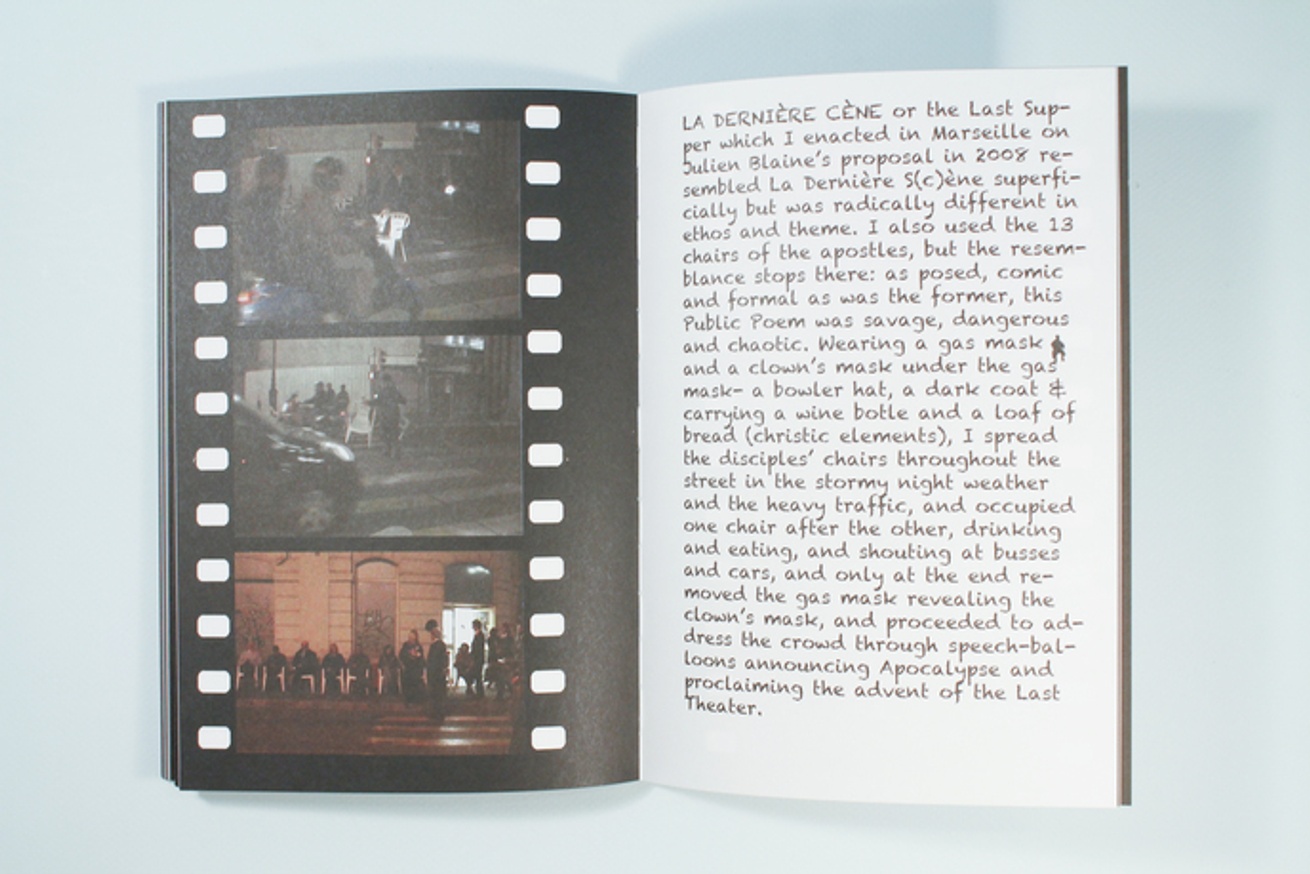 LA DERNIÈRE CÈNE or the Last Sup-
per which I enacted in Marseille on
Julien Blaine's proposal in 2008 re-
sembled La Dernière S(c)ène superfi-
cially but was radically different in
ethos and theme. I also used the 13
chairs of the apostles, but the resem-
blance stops there: as posed, comic
and formal as was the former, this
Public Poem was savage, dangerous
and chaotic. Wearing a gas mask
and a clown's mask under the gas
mask- a bowler hat, a dark coat &
carrying a wine botle and a loaf of
bread (christic elements), I spread
the disciples' chairs throughout the
street in the stormy night weather
and the heavy traffic, and occupied
one chair after the other, drinking
and eating, and shouting at busses
and cars, and only at the end re-
moved the gas mask revealing the
clown's mask, and proceeded to ad-
dress the crowd through speech-bal-
loons announcing Apocalypse and
proclaiming the advent of the Last
Theater.